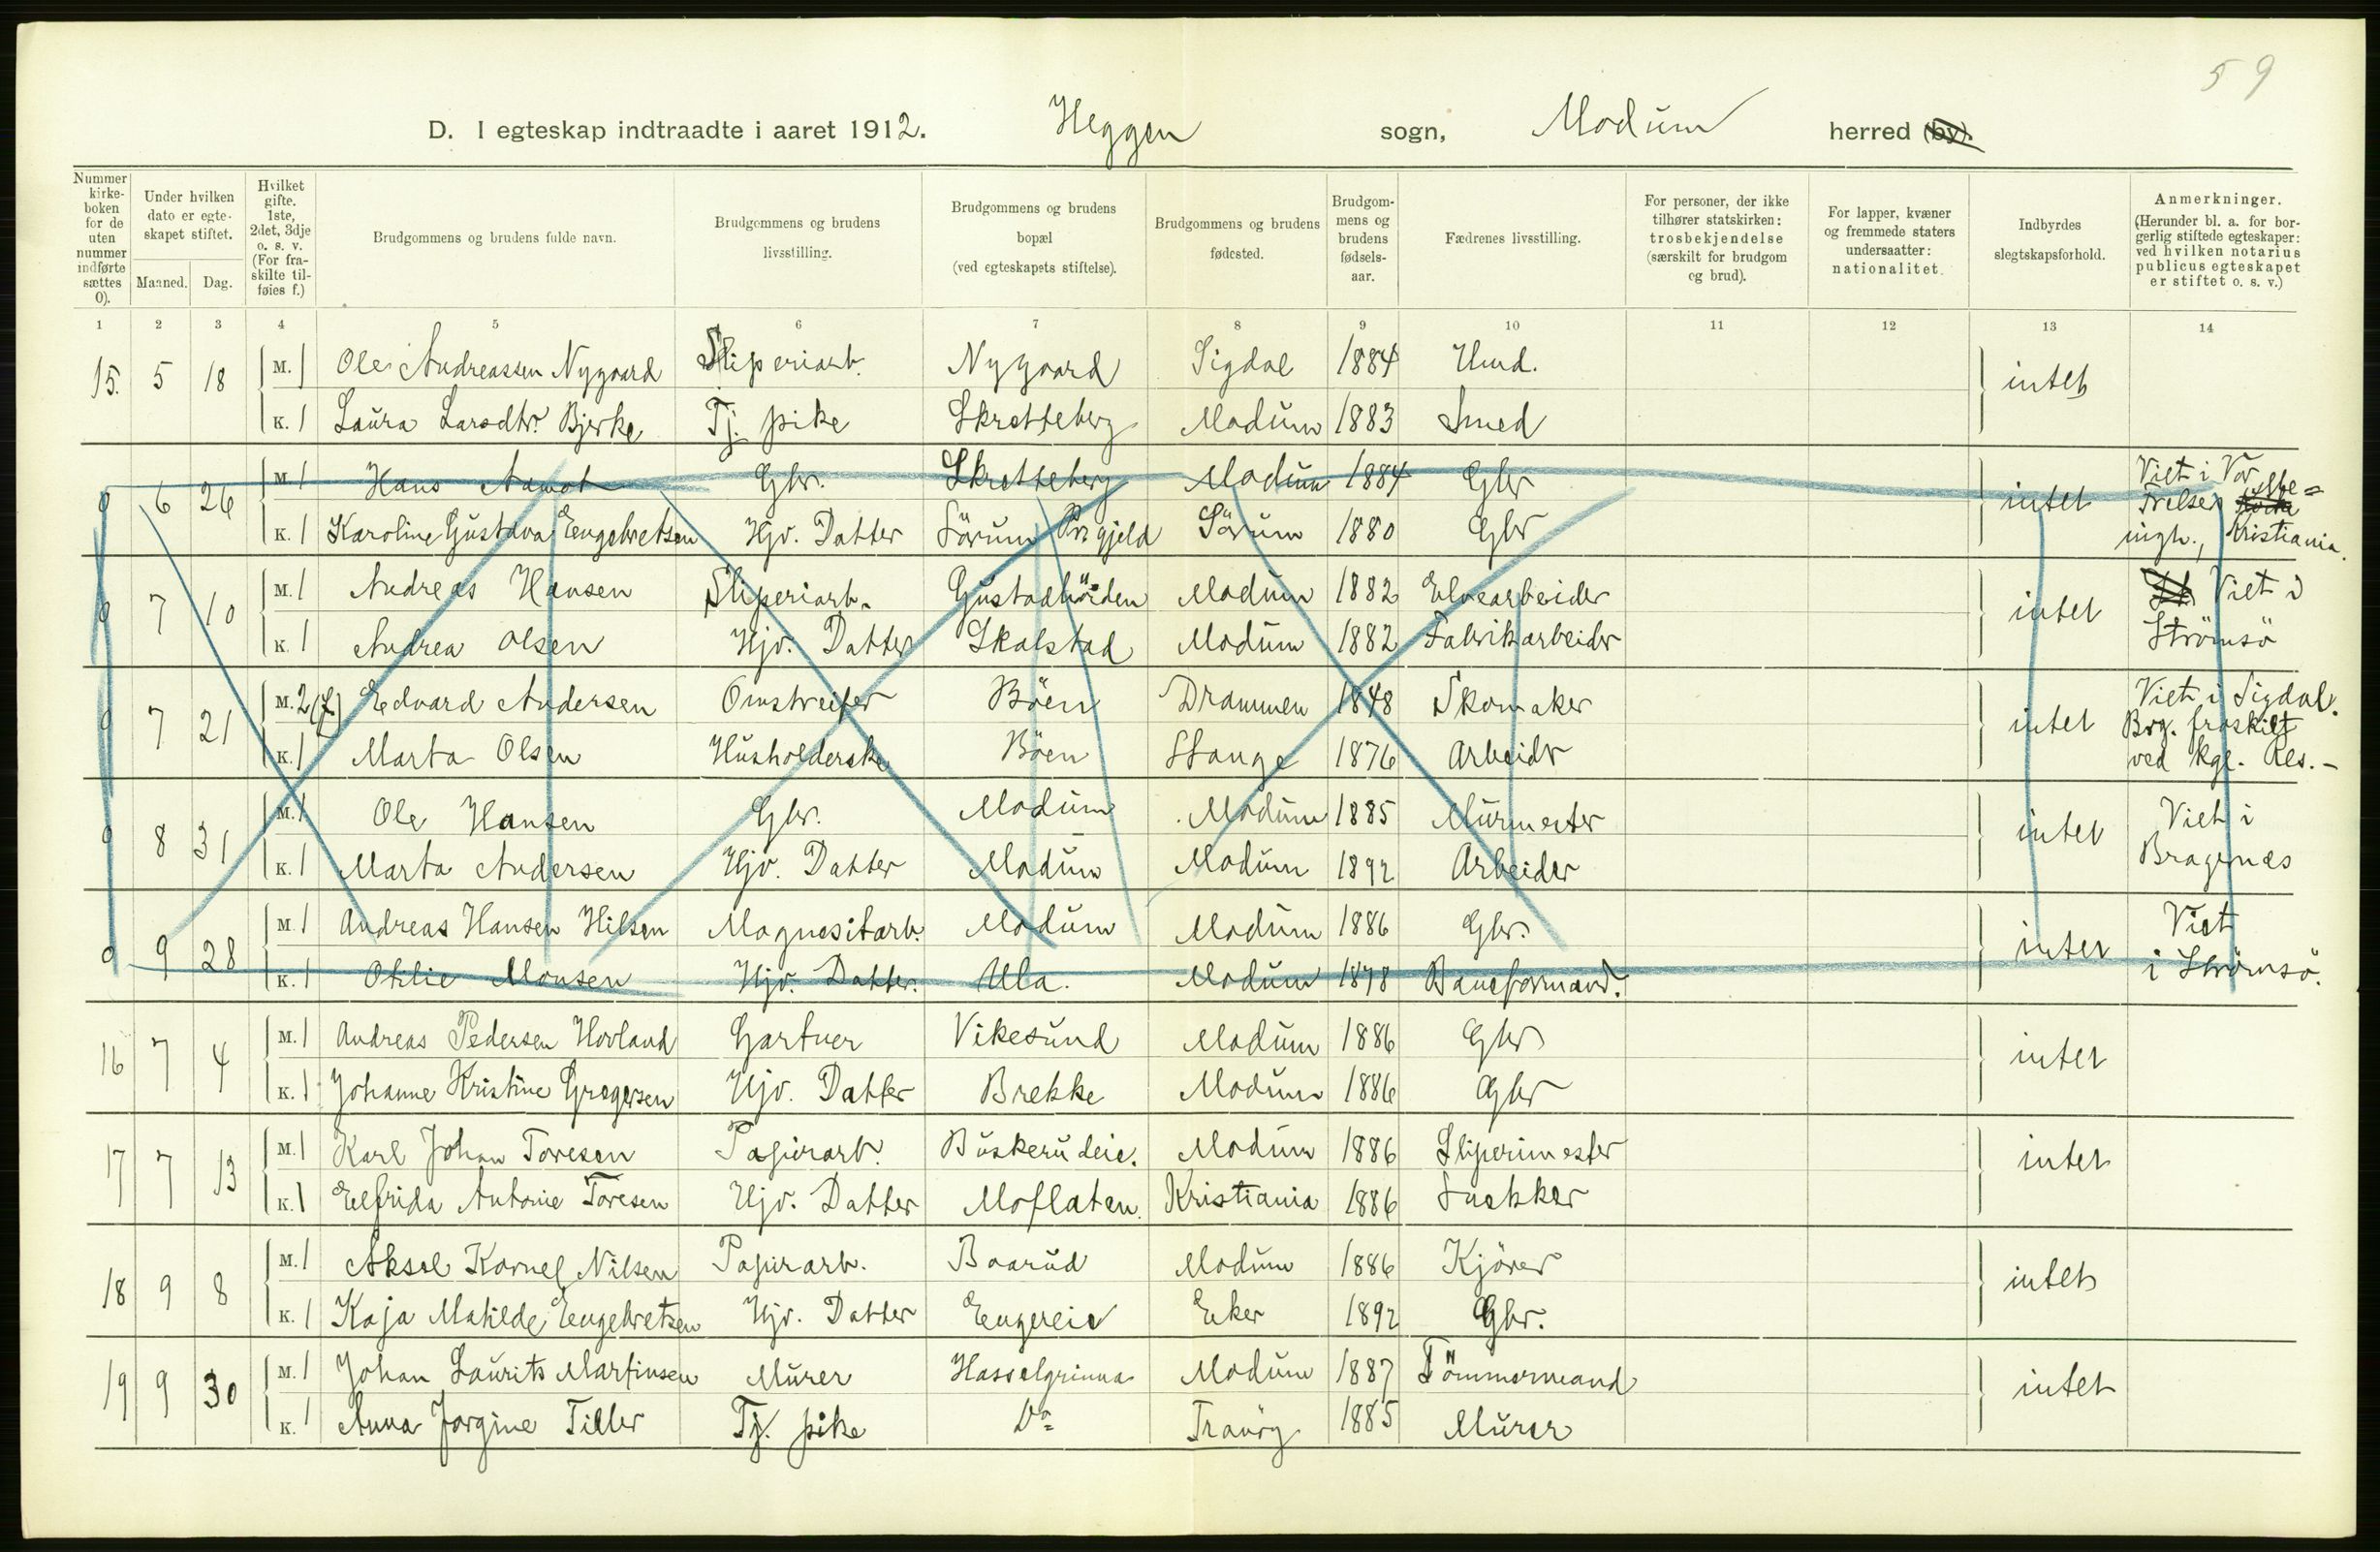 59
D. I egteskap indtraadte i aaret 1912. Heggen sogn, Modum herred (by).
Nummer kirkeboken for de uten nummer indførte sættes 0).
Under hvilken dato er egteskapet stiftet.
Maaned. Dag.
Hvilket gifte. 1ste, 2det, 3dje o. s. v. (For fraskilte tilføies f.)
Brudgommens og brudens fulde navn.
Brudgommens og brudens livsstilling.
Brudgommens og brudens bopæl (ved egteskapets stiftelse).
Brudgommens og brudens fødested.
Brudgommens og brudens fødselsaar.
Fædrenes livsstilling.
For personer, der ikke tilhører statskirken: trosbekjendelse (særskilt for brudgom og brud).
For lapper, kvæner og fremmede staters undersaatter: nationalitet.
Indbyrdes slegtskapsforhold.
Anmerkninger. (Herunder bl. a. for borgerlig stiftede egteskaper: ved hvilken notarius publicus egteskapet er stiftet o. s. v.)
1 2 3 4 5 6 7 8 9 10 11 12 13 14
15. 5 18 M. 1 Ole Andreassen Nygaard Sliperiarb. Nygaard Sigdal 1884 Umd. intet
K. 1 Laura Larsdtr. Bjerke Tj. pike Skretteberg Modum 1883 Smed
0 6 26 M 1 Hans Aamot Gbr. Skretteberg Modum 1884 Gbr intet Viet i Vor Frelse
K. 1 Karoline Gustava Engebretsen Hjv. Datter Sörum Pr gjeld Sörum 1880 Gbr Kristiania.
0 7 10 M. 1 Andreas Hansen Sliperiarb. Modum 1882 Elvearbeider intet Viet i
K. 1 Andrea Olsen Hjv. Datter Skalstad Modum 1882 Fabrikarbeider Strömsö
0 7 21 M. 2(f) Edvard Andersen Omstreifer Böen Drammen 1848 Skomaker intet Viet i Sigdal. Brg. fraskilt
K. 1 Marta Olsen Husholderske Böen Stange 1876 Arbeidr ved kgl. Res. -
0 8 31 M. 1 Ole Hansen Gbr. Modum Modum 1885 Murmester intet Viet i
K. 1 Marta Andersen Hjv. Datter Modum Modum 1892 Arbeider Bragenæs
0 9 28 M. 1 Andreas Hansen Hilsen Magnesitarb. Modum Modum 1886 Gbr. intet Viet
K. 1 Otilie Monsen Hjv. Datter. Ula. Modum 1878 Baneformand. i Strömsö.
16 7 4 M. 1 Andreas Pedersen Hovland Gartner Vikesund Modum 1886 Gbr intet
K. 1 Johanne Kristine Gregersen Hjv. Datter Brekke Modum 1886 Gbr
17 7 13 M. 1 Karl Johan Toresen Papirarb. Buskerudeie. Modum 1886 Sliperimester intet
K. 1 Elfrida Antonie Toresen Hjv. Datter Moflaten. Kristiania 1886 Snekker
18 9 8 M. 1 Aksel Kornel Nilsen Papirarb. Baarud Modum 1886 Kjörer intet
K. 1 Kaja Matilde Engebretsen Hjv. Datter Engereie Eker 1892 Gbr.
19 9 30 M. 1 Johan Laurits Martinsen Murer Hasselgrinna Modum 1887 Tömmermand intet
K. 1 Anna Jorgine Tiller Tj. pike Do 1885 Murer